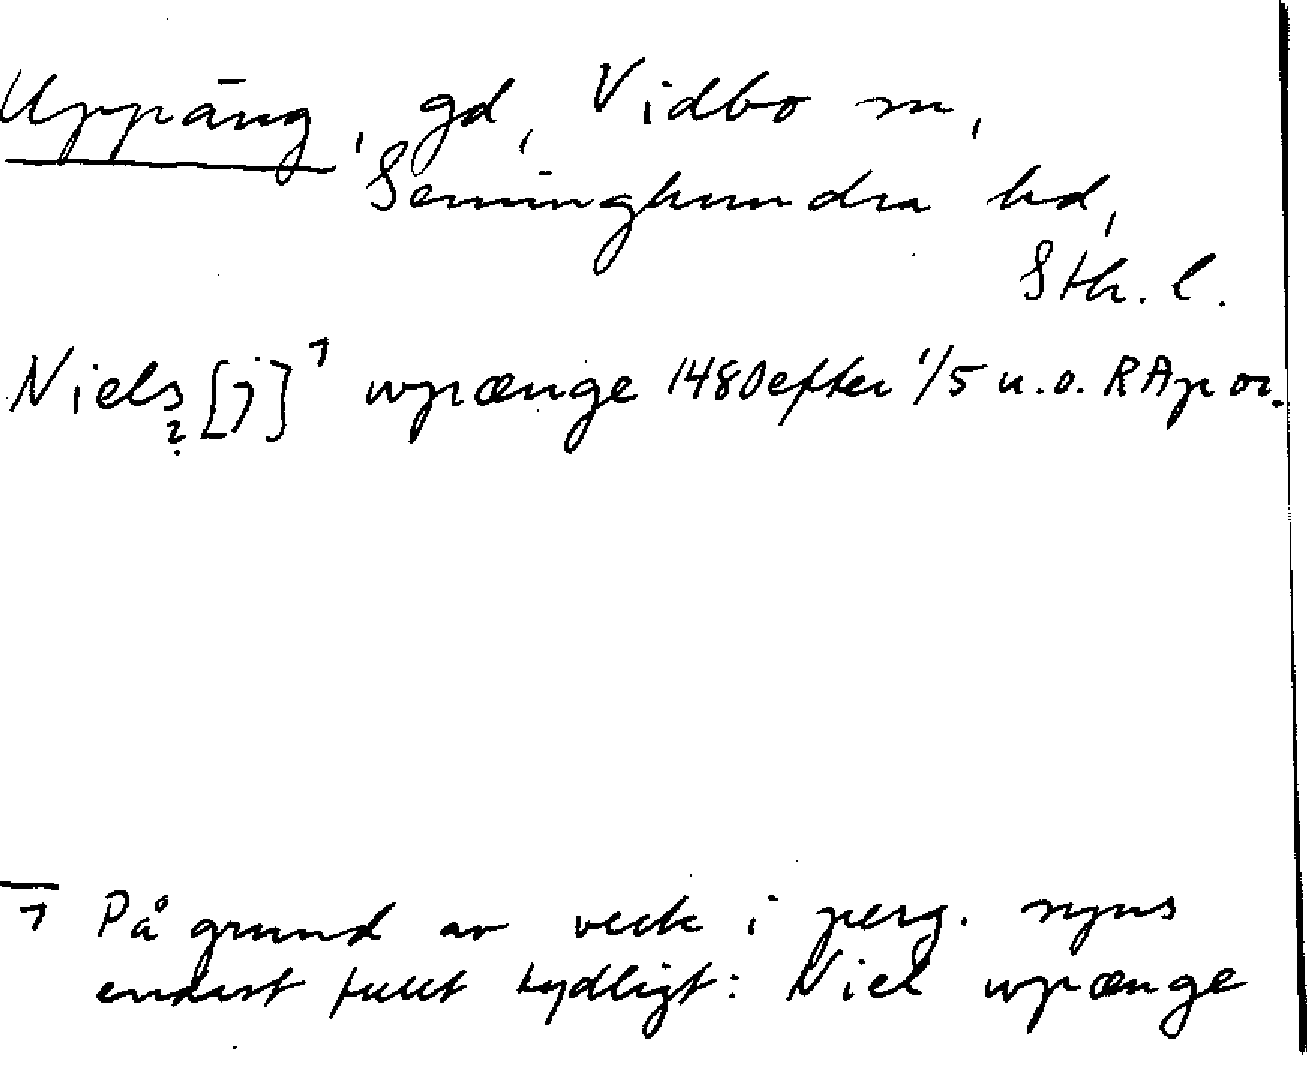 Uppäng, gd, Vidbo sn,
Seminghundra hd,
Sth. l.
Niels [j]¹ wpænge 1480 efter 1/5 u.o. RAp or.
?
1 På grund av veck i perg. syns
endast fullt tydligt: Niel wpænge